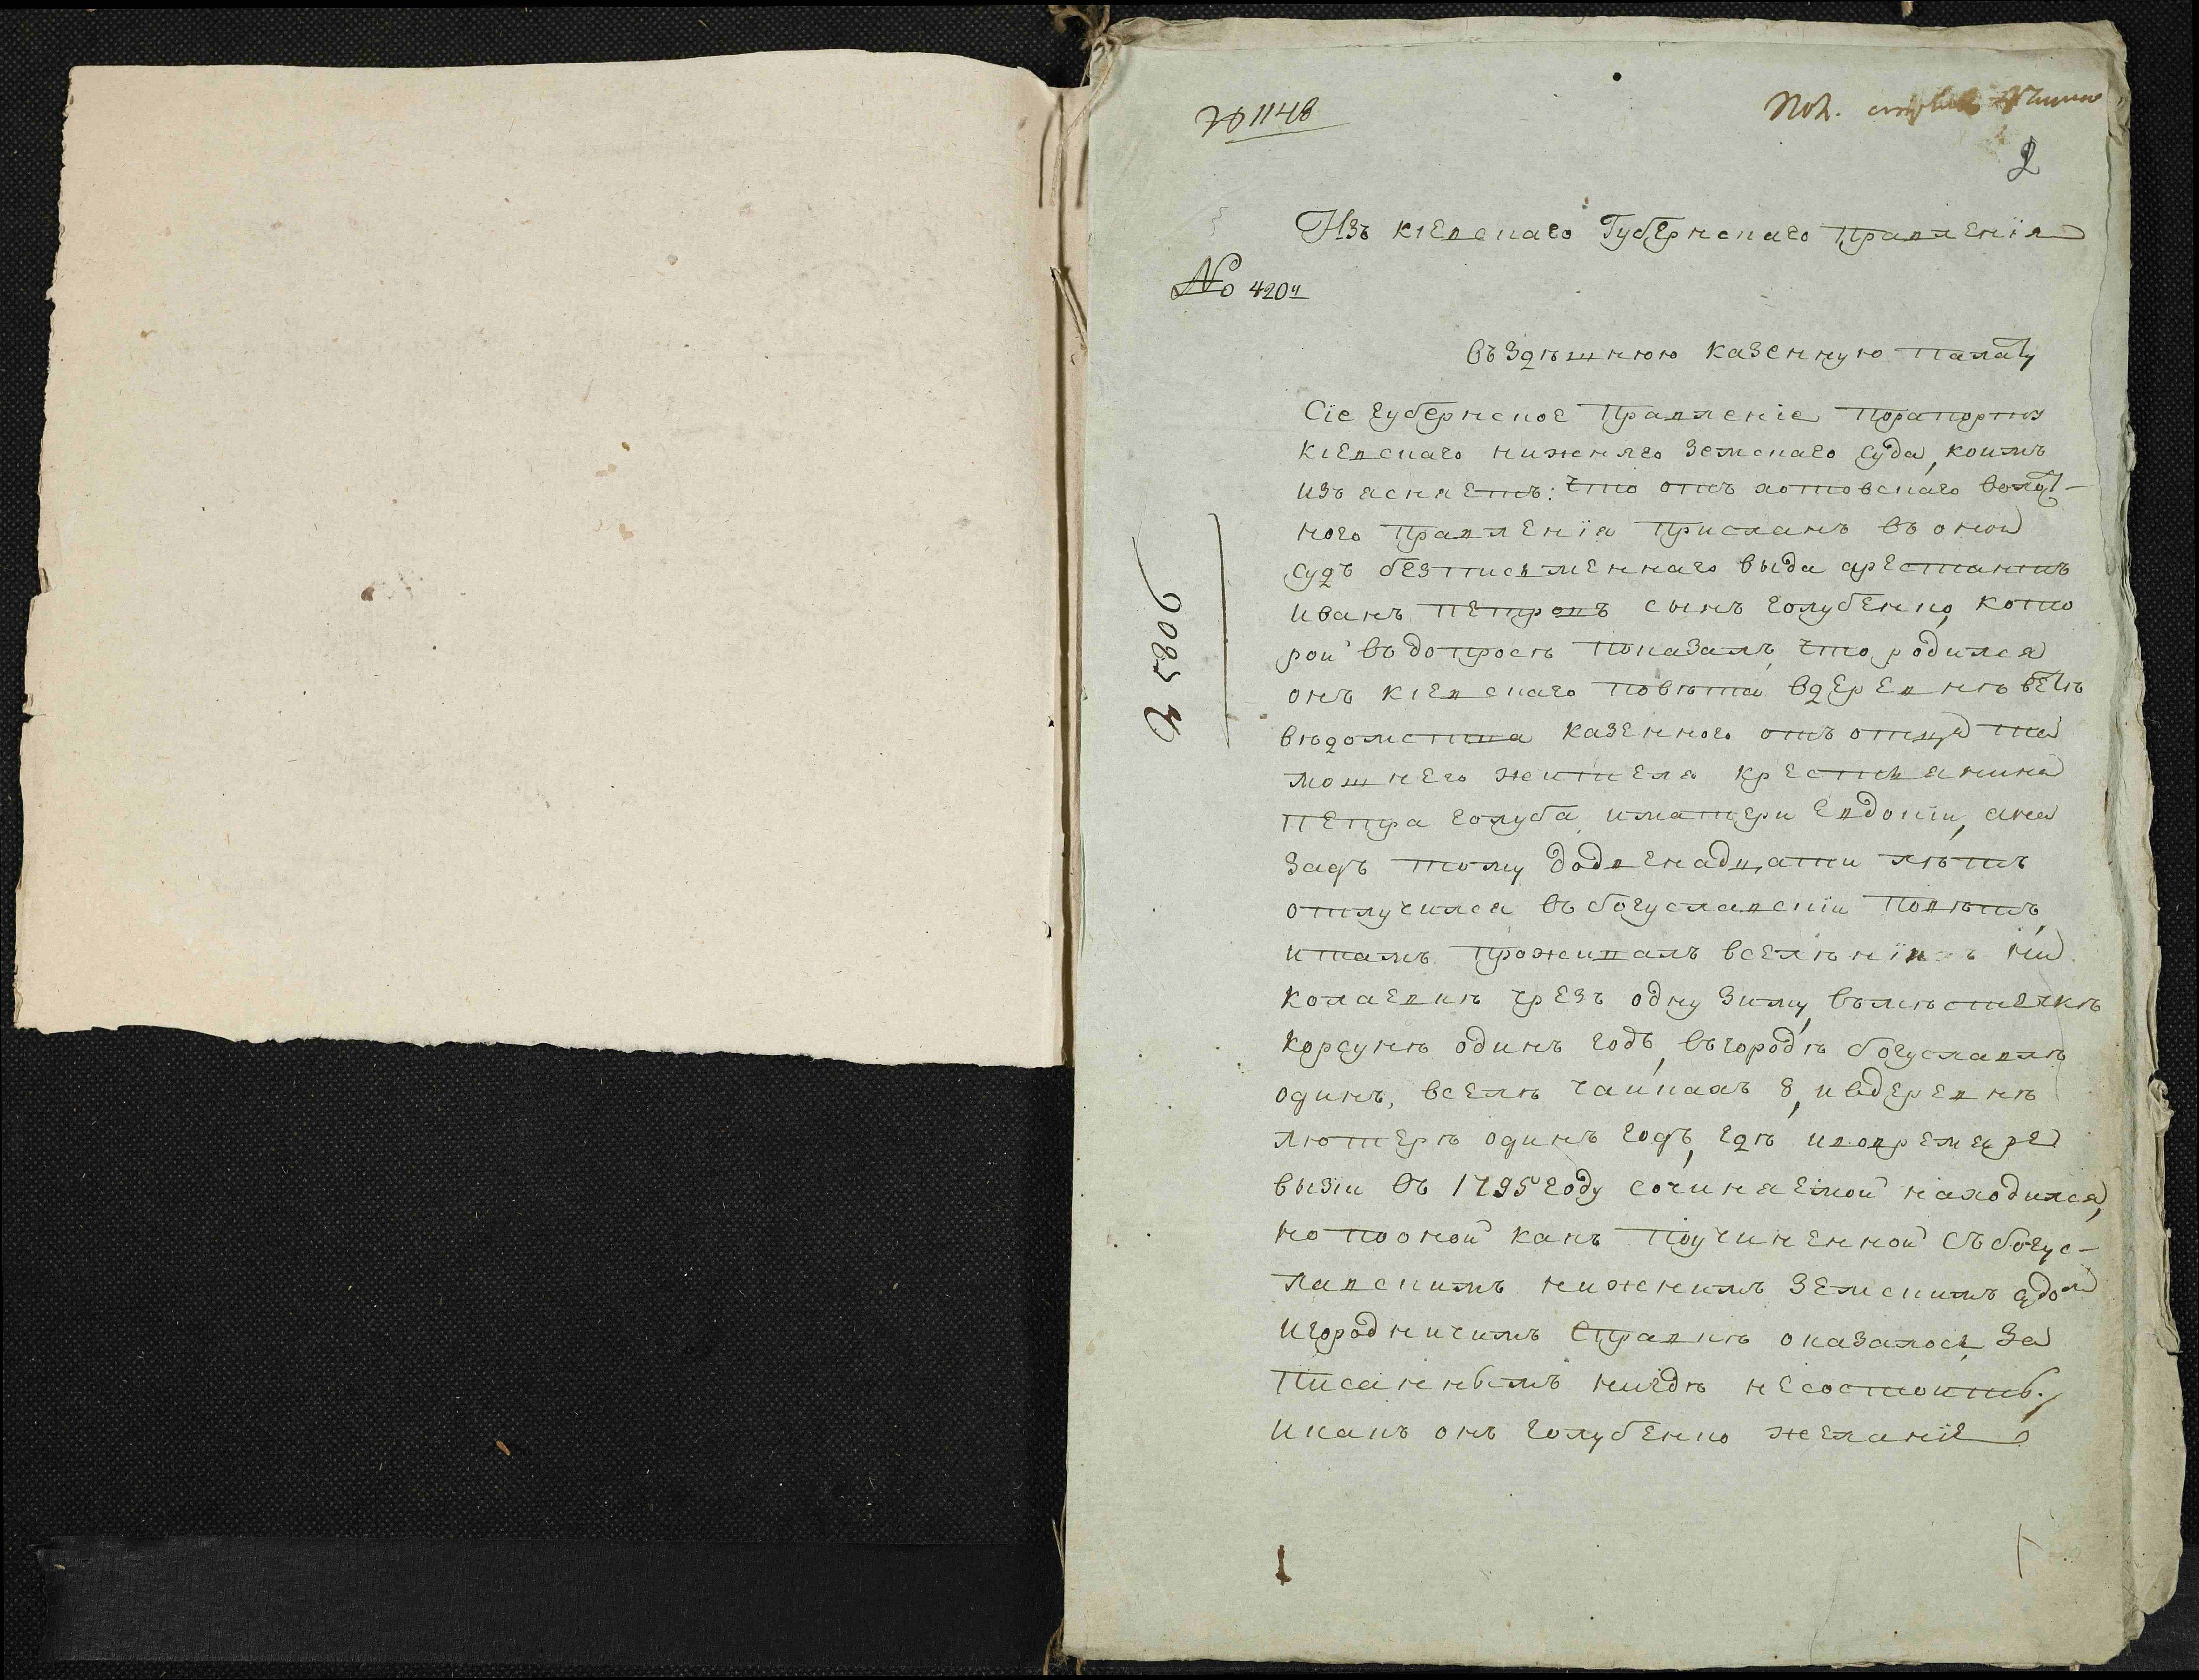 № 1148
2
Изъ кіевскаго Губернскаго Правленія
№ 4204
въ здѣшнюю казенную палату
Сіе губернское Правленіе по рапорту
кіевскаго нижняго земскаго суда, коимъ
изъясняетъ: что отъ хотовскаго волост-
ного правленія присланъ въ оной
судъ безписьменнаго выда арестантъ
иванъ петровъ сынъ голубенко, кото
рой въ допросѣ показалъ, что родился
онъ кіевскаго повѣта въ деревнѣ бѣлѣ
вѣдомства казенного отъ отца та
мошнего жителя крестьянина
петра голуба, и матери Евдокіи, а на
задъ тому до двенадцати лѣтъ
отлучился въ богуславскіи повѣтъ,
и тамъ проживалъ в селѣніяхъ ни
колаевкѣ чрезъ одну зиму, въ мѣстечкѣ
корсунѣ одинъ годъ, въ городѣ богуславлѣ
одинъ, в селѣ чайкахъ 8, и в деревнѣ
лютерѣ одинъ годъ, гдѣ и во время ре
вызіи въ 1795 году сочиняемой находился,
но по оной какъ по учиненной съ богус-
лавскимъ нижнимъ земскимъ судом
и городничимъ справкѣ оказалось, за
писаннымъ нигдѣ не состоитъ.
и какъ онъ голубенко желаніе
9085